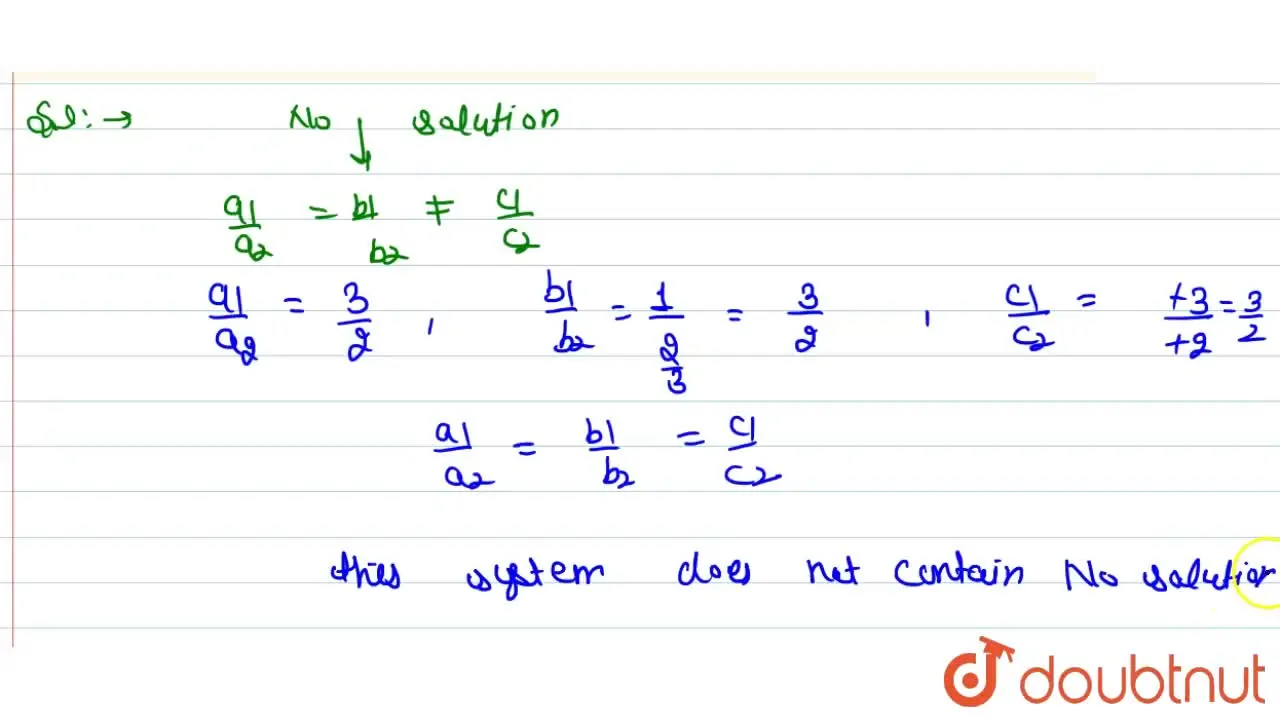 Sol:→ No solution
↓
a1/a2 = b1/b2 ≠ c1/c2
a1/a2 = 3/2 , b1/b2 = 1/(2/3) = 3/2 , c1/c2 = +3/+2 = 3/2
a1/a2 = b1/b2 = c1/c2
this system does not contain No solution
doubtnut